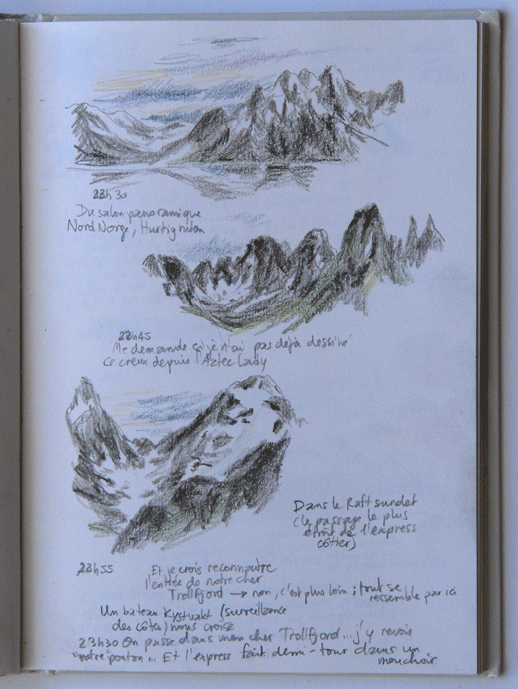 22h30
Du salon panoramique
Nord Norge, Hurtigruten
22h45
Me demande si je n'ai pas déjà dessiné
ce creux depuis l'Aztec Lady
Dans le Raft sundet
(le passage le plus
étroit de l'express
côtier)
22h55 Et je crois reconnaître
l'entrée de notre cher
Trollfjord → non, c'est plus loin ; tout se
ressemble par ici
Un bateau Kystvakt (surveillance
des côtes) nous croise
23h30 On passe dans mon cher Trollfjord... j'y revois
"notre" ponton... Et l'express fait demi-tour dans un
mouchoir